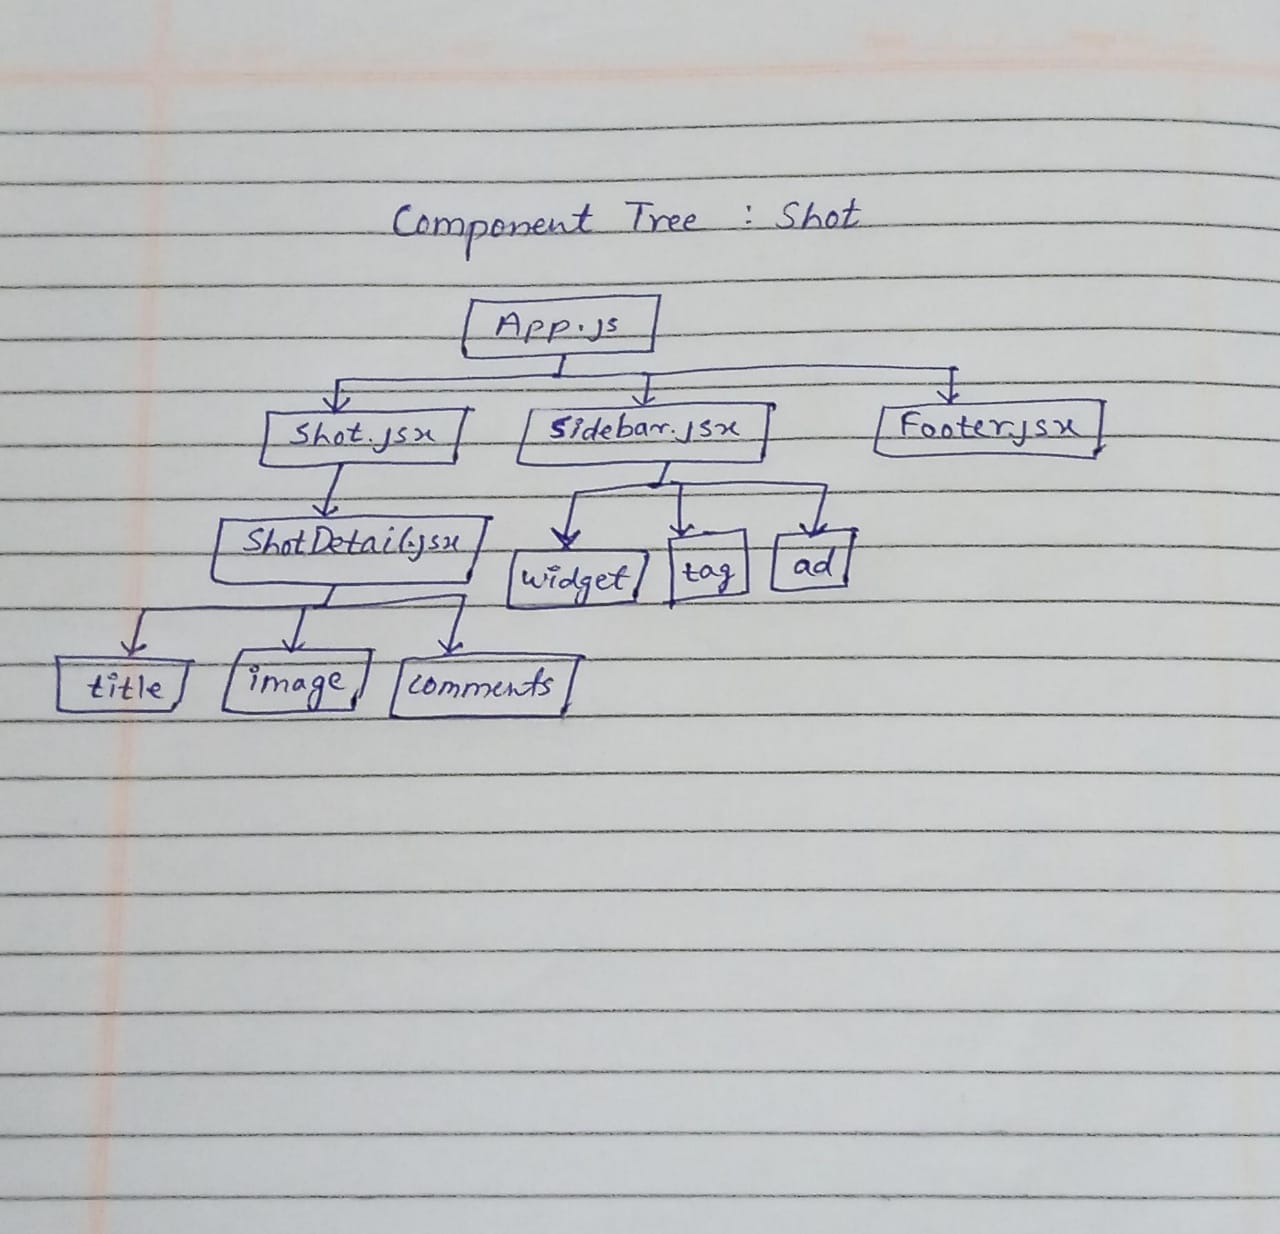 Component Tree : Shot
App.js
Shot.jsx Sidebar.jsx Footer.jsx
ShotDetail.jsx widget tag ad
title image comments